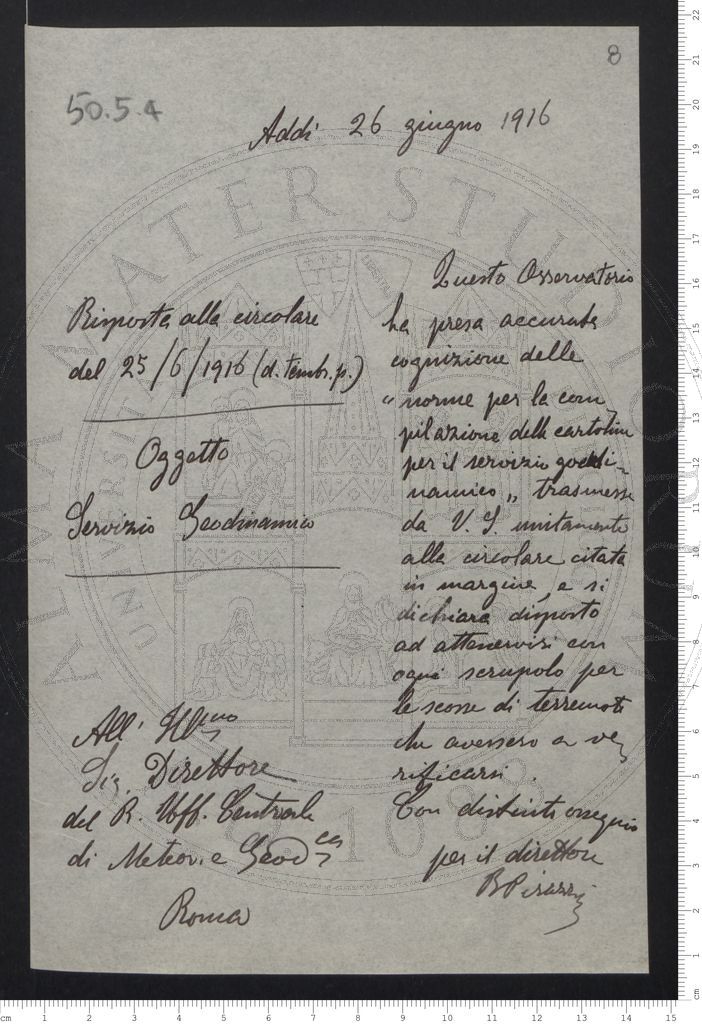 8
50.5.4
Addì 26 giugno 1916
Risposta alla circolare
del 25/6/1916 (d. timbr. p.)
Oggetto
Servizio Geodinamico
All' Ill.mo
Sig. Direttore
del R. Uff. Centrale
di Meteor. e Geod.ca
Roma
Questo Osservatorio
ha presa accurata
cognizione delle
"norme per la com
pilazione delle cartoline
per il servizio geodi-
namico„ trasmesse
da V. S. unitamente
alla circolare citata
in margine, e si
dichiara disposto
ad attenervisi con
ogni scrupolo per
le scosse di terremoti
che avessero a ve
rificarsi.
Con distinti ossequi
per il direttore
ALMA MATER STUDIORUM
LIBERTAS
1088